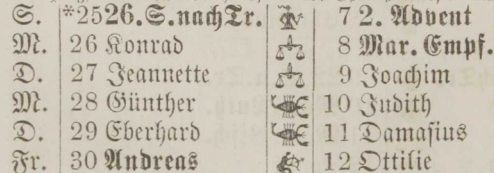 S. *25 26. S. nach Tr. 7 2. Advent
M. 26 Konrad 8 Mar. Empf.
D. 27 Jeannette 9 Joachim
M. 28 Günther 10 Judith
D. 29 Eberhard 11 Damasius
Fr. 30 Andreas 12 Ottilie